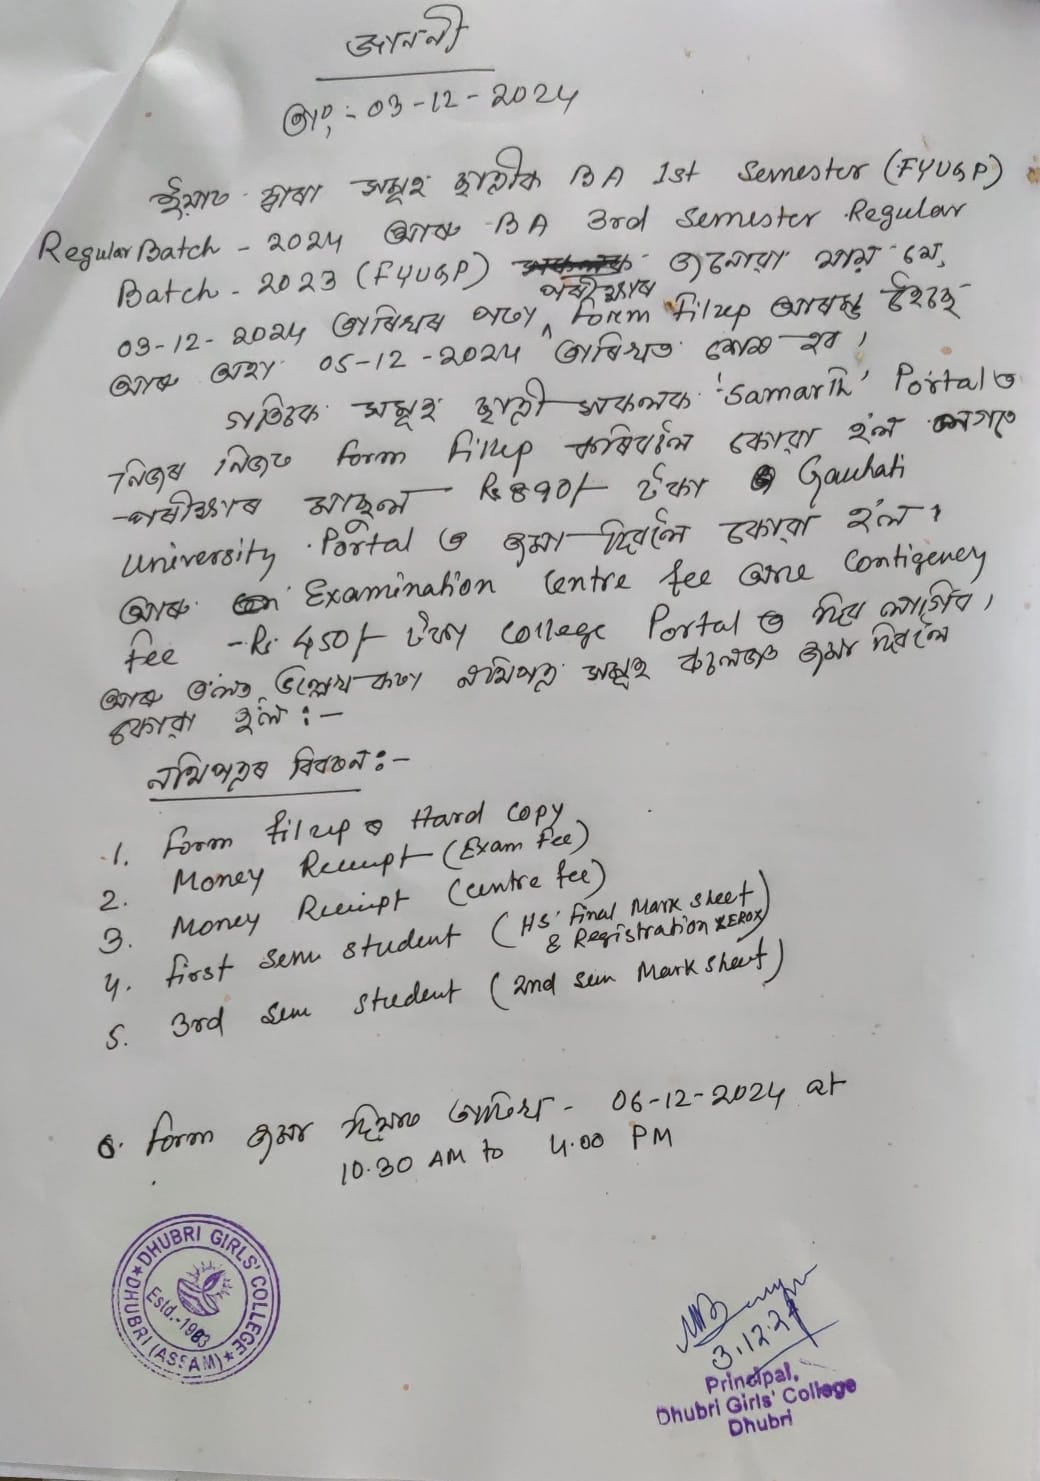 জাননী
তাং:- 03-12-2024
ইয়াৰ দ্বাৰা সমূহ ছাত্ৰীক BA 1st Semester (FYUGP)
Regular Batch - 2024 আৰু BA 3rd Semester Regular
Batch - 2023 (FYUGP) জনোৱা যায় যে,
03-12-2024 তাৰিখৰ পৰা পৰীক্ষাৰ form filup আৰম্ভ হৈছে
আৰু অহা 05-12-2024 তাৰিখত শেষ হব।
গতিকে সমূহ ছাত্ৰী সকলক 'Samarth' Portal ত
নিজৰ নিজত form filup কৰিবলৈ কোৱা হ'ল লগতে
পৰীক্ষাৰ মাছুল Rs 890/- টকা Gauhati
University Portal ত জমা দিবলৈ কোৱা হ'ল।
আৰু Examination Centre fee আৰু Contigency
fee - Rs 450/- টকা College Portal ত দিব লাগিব।
আৰু তলত উল্লেখ কৰা নথিপত্ৰ সমূহ কলেজত জমা দিবলৈ
কোৱা হ'ল :-
নথিপত্ৰৰ বিৱৰণ:-
1. Form filup ৰ Hard copy
2. Money Receipt (Exam Fee)
3. Money Receipt (Centre fee)
4. First Sem student (HS Final Mark sheet
& Registration XEROX)
5. 3rd Sem student (2nd Sem Mark sheet)
6. Form জমা দিয়াৰ তাৰিখ - 06-12-2024 at
10.30 AM to 4.00 PM
DHUBRI GIRLS' COLLEGE
Estd.-1983
DHUBRI (ASSAM)
3.12.24
Principal,
Dhubri Girls' College
Dhubri